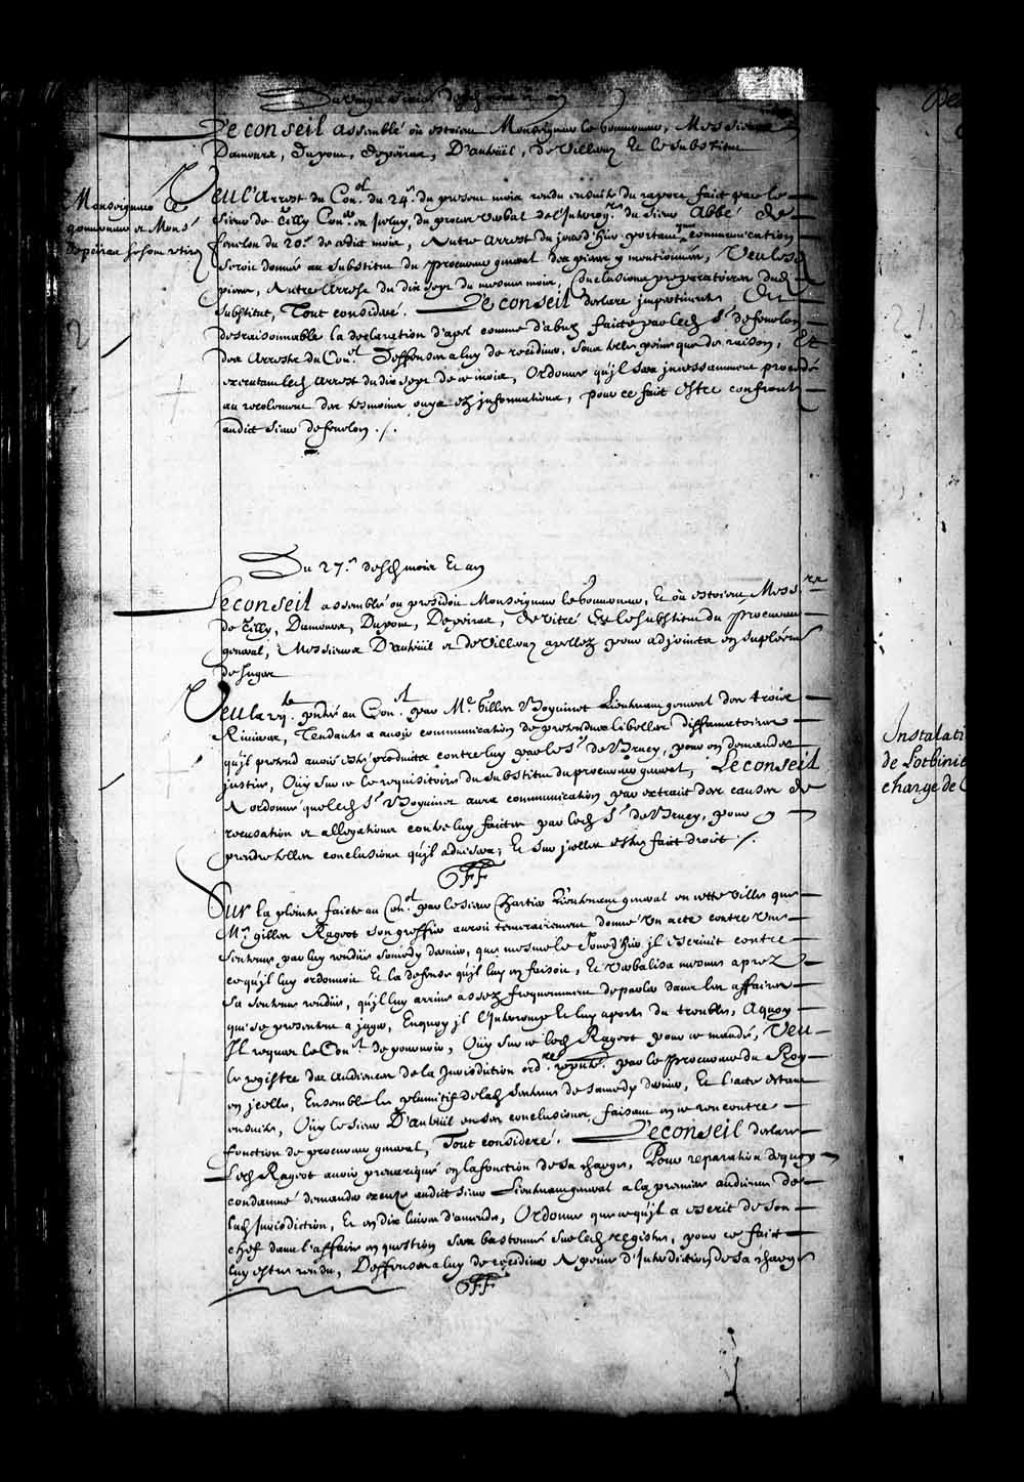 Le conseil assemblé où estoient Monseigneur le Gouverneur, Messieurs
Damours, Dupont, Depeiras, D'auteüil, de Villeray Et le substitut
Monseigneur le
gouverneur et Mons.r
Depeiras se sont retirez
Veu l'Arrest du Con.el du 24.e du present mois rendu ensuite du raport fait par le
sieur de Tilly Con.er en iceluy, du procez verbal de l'Interrog.re du sieur Abbé de
fenelon du 20.e de cedit mois, Autre arrest du jourd'huy portant que communication
seroit donnée au substitut du procureur general des pieces y mentionnées, Veu lesd.
pieces, Autre Arrest du dix sept du mesme mois, Conclusions preparatoires dud.
substitut, Tout consideré. Le conseil declare impertinente, Et
desraisonnable la declaration d'apel comme d'abus faicte par led. S.r de fenelon
des Arrests du Con.el Deffenses a luy de recidiver, sous telle peine que de raison, Et
executant led. arrest du dix sept de ce mois, Ordonne qu'il sera incessamment procedé
au recolement des tesmoins ouys ez informations, pour ce fait estre confrontez
audict sieur de fenelon ./.
Du 27.e desd. mois Et an
Le conseil assemblé ou presidoit Monseigneur le Gouverneur, Et où estoient Mess.rs
de Tilly, Damours, Dupont, Depeiras, de Vitré Et le substitut du procureur
general, Messieurs D'auteüil et de Villeray apellez pour adjoints en supléement
de Juges
Veu la req.te pntée au Con.el par M.e Gilles Boyvinet Lieutenant general des trois
Rivieres, Tendante a avoir communication de pretendus libelles diffamatoires
qu'il pretend avoir esté produits contre luy par le S.r de Brucy, pour en demander
justice, Ouy sur ce le requisitoire du substitut du procureur general, Le conseil
A ordonné que led. S.r Boyvinet aura communication par extrait des causes de
recusation et allegations contre luy faites par led. S.r de Brucy, pour y
prendre telles conclusions qu'il advisera, Et sur icelles estre fait droit ./.
Sur la plainte faicte au Con.el par le sieur Chartier Lieutenant general en cette Ville que
M.e gilles Rageot son greffier auroit temerairement donné Un acte contre une
sentence par luy rendüe samedy dernier, que mesme le Jourd'huy il escrivit contre
ce qu'il luy ordonnoit Et la defense qu'il luy en faisoit, Et verbalisa mesmes aprez
sa sentence rendüe, qu'il luy arrive assez frequemment de parler dans les affaires
qui se presentent a juger, Enquoy il l'Interrompt Et luy aporte du trouble, A quoy
Il requier le Con.el de pourvoir, Ouy sur ce led. Rageot pour ce mandé, Veu
le registre des audiences de la Jurisdiction ord.re par le procureur du Roy
en icelle, Ensemble le plumitif de lad. sentence de samedy dernier, Et l'acte estant
ensuite, Ouy le sieur D'auteüil en ses conclusions faisant en ce rencontre
fonction de procureur general, Tout consideré. Le conseil declare
led. Rageot avoir prevariqué en la fonction de sa charge, Pour reparation dequoy
condamné demander excuse audit sieur Lieutenant general a la premiere audience de
lad. Jurisdiction, Et en dix livres d'amende, Ordonne que ce qu'il a escrit de son
chef dans l'affaire en question sera bastonné sur led. registre, pour ce fait
luy estre rendu, Deffenses a luy de recidiver A peine d'Interdiction de sa charge
Instalati
de Lotbinie
charge de